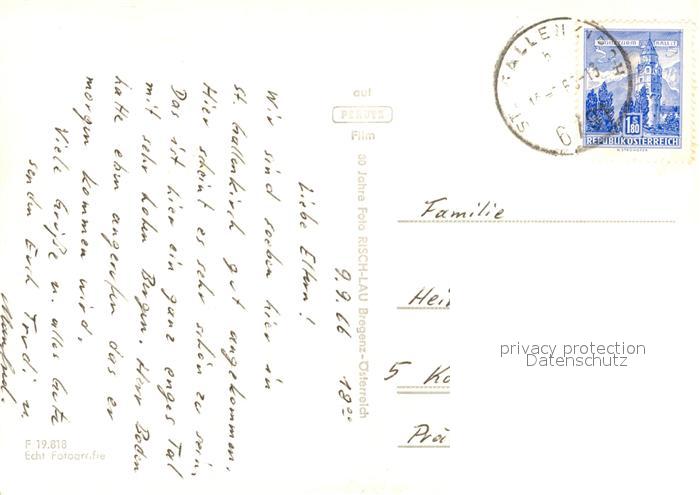 9.9.66 18⁰⁰
Liebe Eltern!
Wir sind soeben hier in
St. Gallenkirch gut angekommen.
Hier scheint es sehr schön zu sein,
Das ist hier ein ganz enges Tal
mit sehr hohen Bergen. Herr Boden
hatte eben angerufen das er
morgen kommen wird.
Viele Grüße u. alles Gute
senden Euch Trudi u.
Manfred.
F 19.818
Echt Fotografie
auf
PERUTZ
Film
30 Jahre Foto RISCH-LAU Bregenz-Österreich
ST. GALLENKIRCH
MÜNZTURM HALL I.T.
1.80
REPUBLIK ÖSTERREICH
Familie
Hei
5 Kö
Prä
privacy protection
Datenschutz